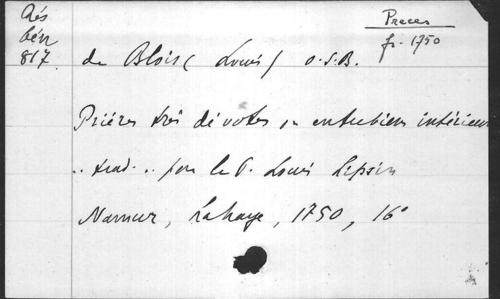 Rés
bén
817.
Preces
fr. 1750
de Blois (Louis) O.S.B.
Prières très dévotes ou entretiens intérieurs
.. trad. .. par le P. Louis Lipsin
Namur, Lahaye, 1750, 16°